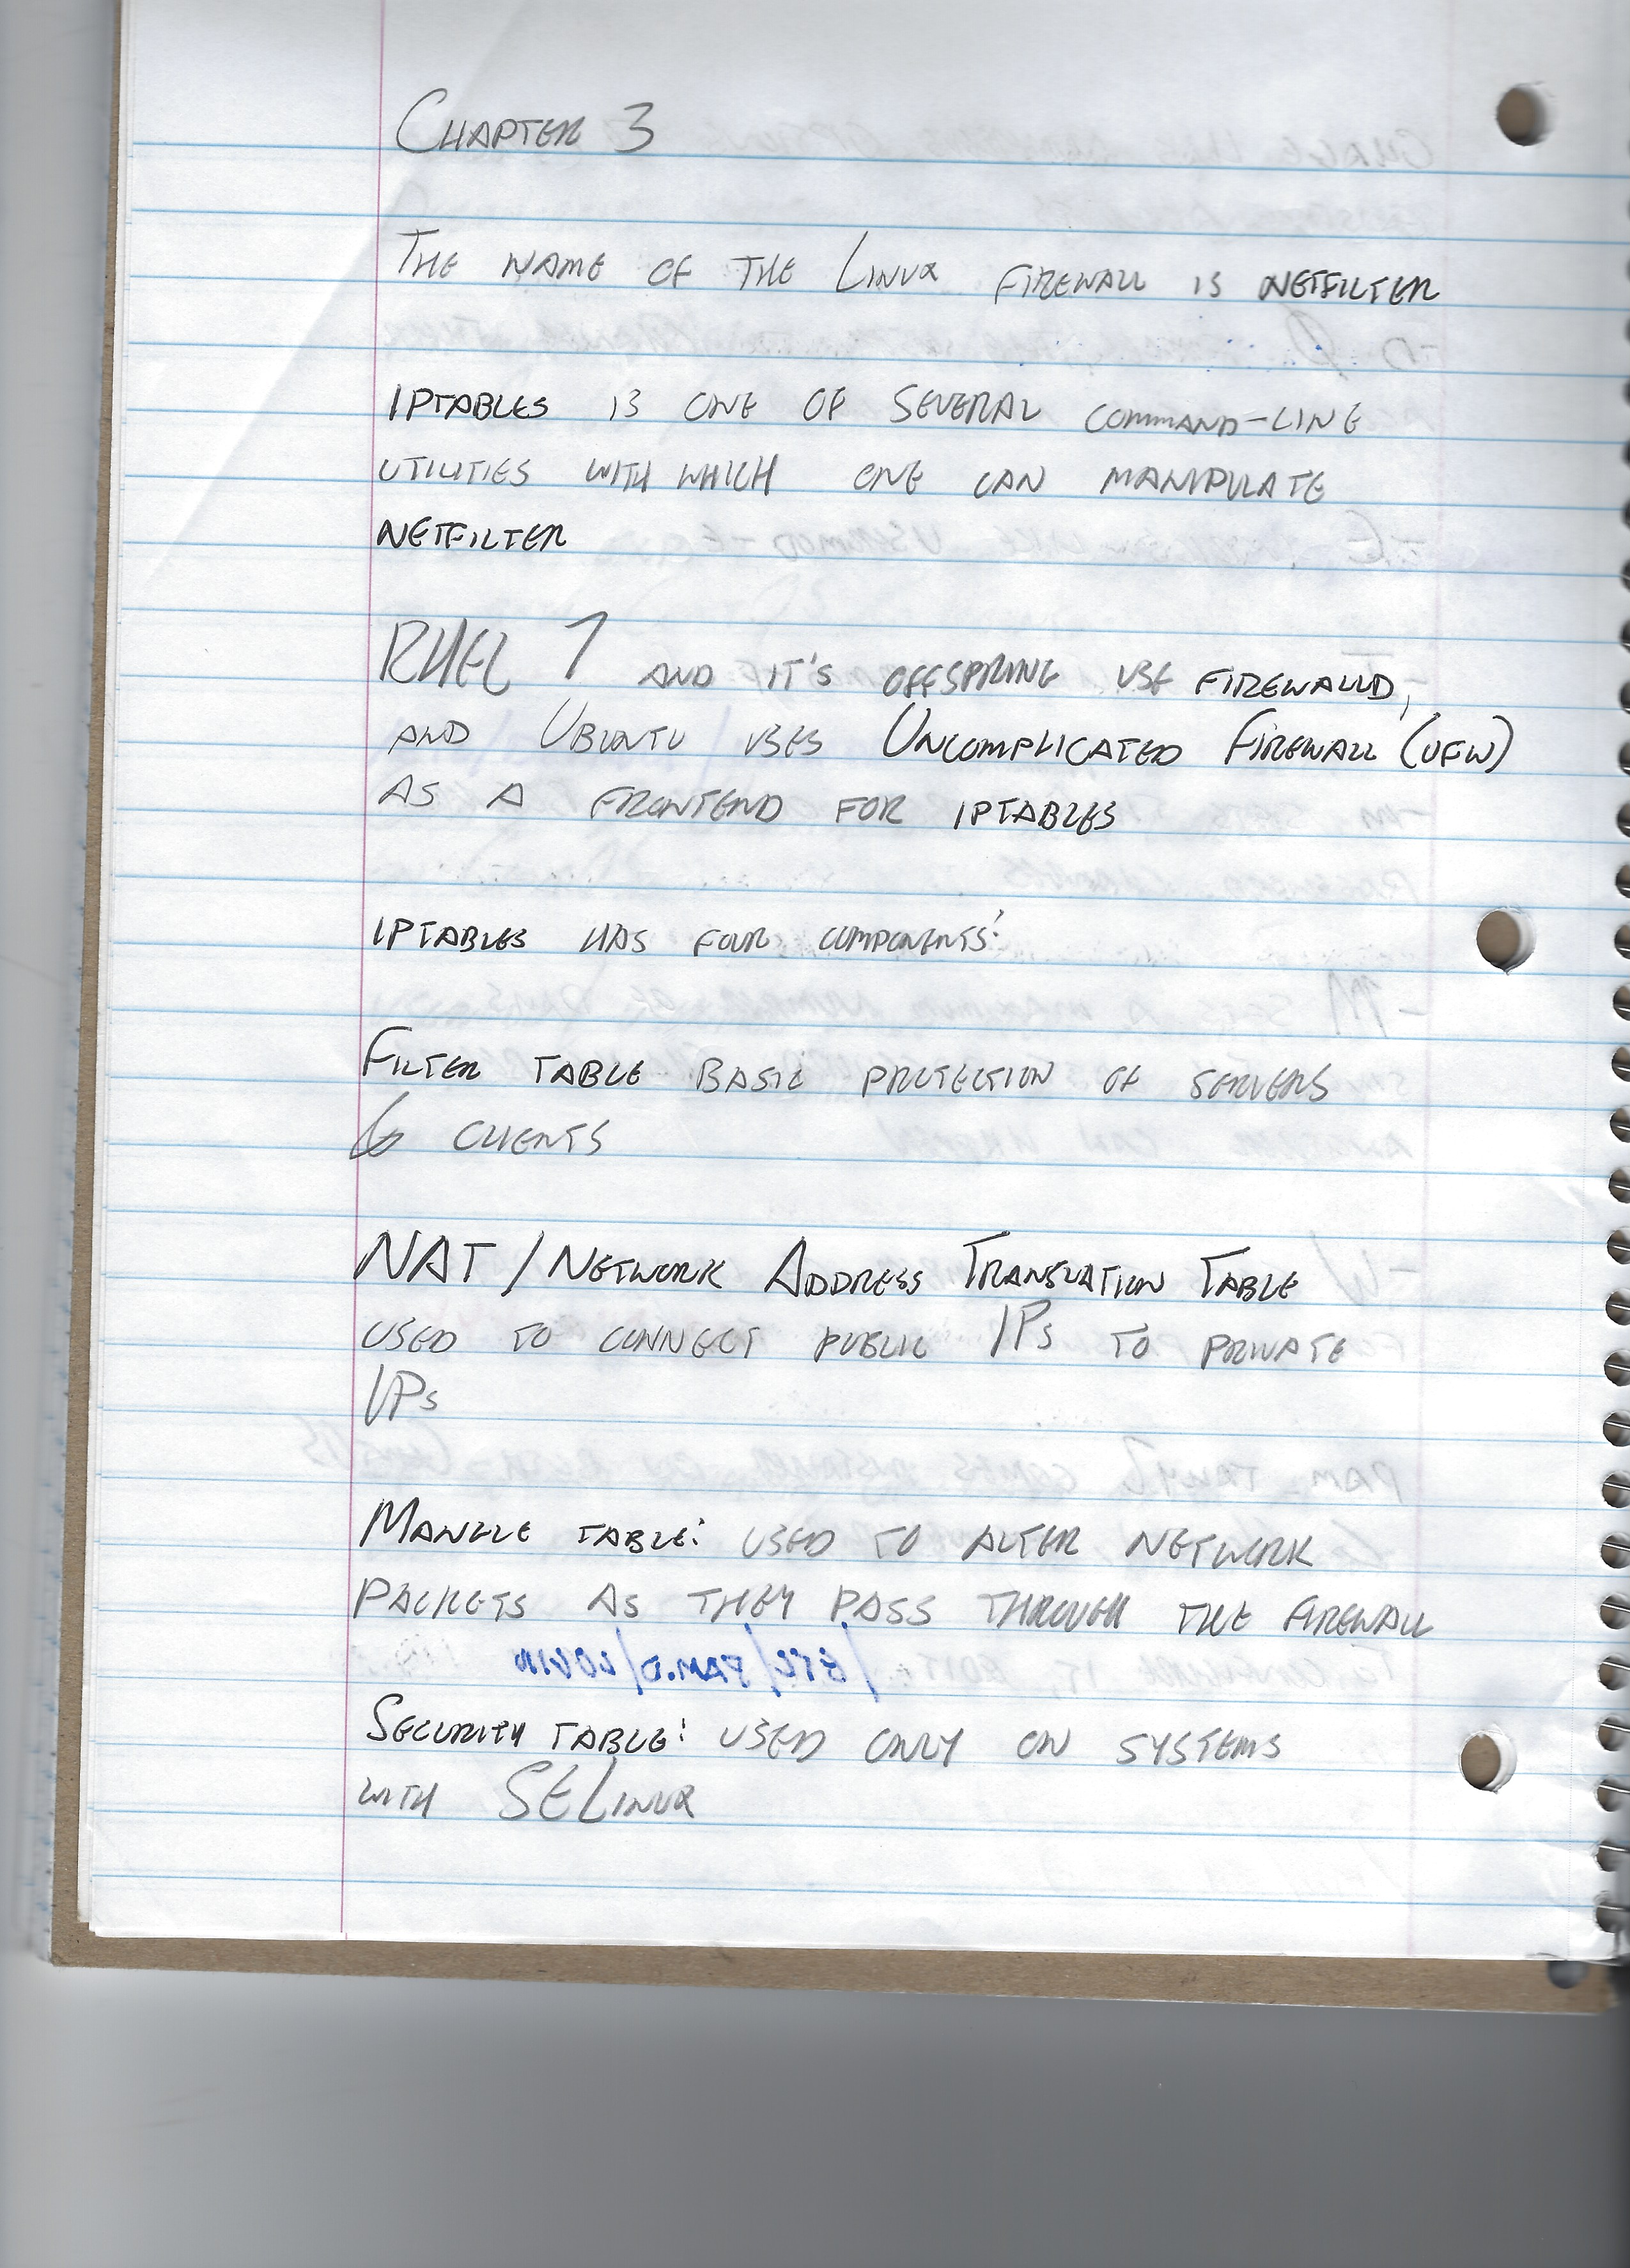 CHAPTER 3
THE NAME OF THE LINUX FIREWALL IS NETFILTER
IPTABLES IS ONE OF SEVERAL COMMAND-LINE
UTILITIES WITH WHICH ONE CAN MANIPULATE
NETFILTER
RHEL 7 AND IT'S OFFSPRING USE FIREWALLD,
AND UBUNTU USES UNCOMPLICATED FIREWALL (UFW)
AS A FRONTEND FOR IPTABLES
IPTABLES HAS FOUR COMPONENTS:
FILTER TABLE BASIC PROTECTION OF SERVERS
& CLIENTS
NAT / NETWORK ADDRESS TRANSLATION TABLE
USED TO CONNECT PUBLIC IPs TO PRIVATE
IPs
MANGLE TABLE: USED TO ALTER NETWORK
PACKETS AS THEY PASS THROUGH THE FIREWALL
/ETC/PAM.D/LOGIN
SECURITY TABLE: USED ONLY ON SYSTEMS
WITH SELINUX